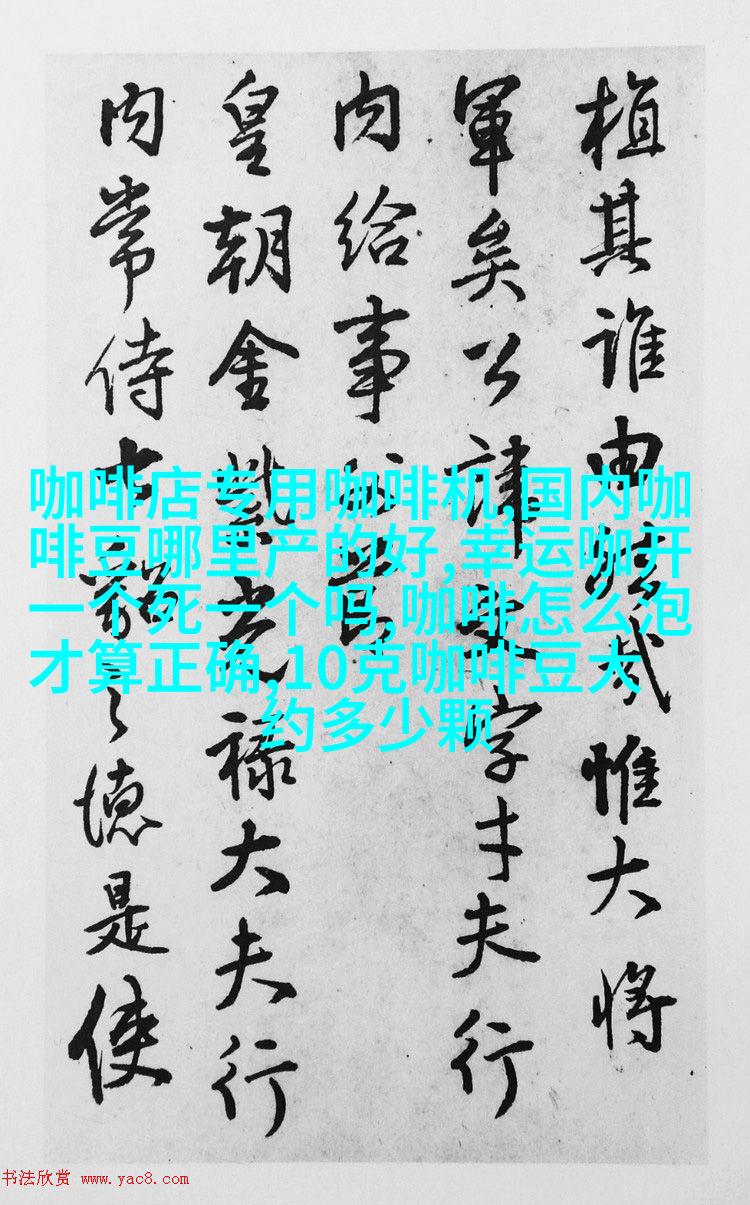 植其誰惟大將
軍矣公諱文字才夫行
內給事
皇朝金紫光祿大夫行
內常侍之德是使
咖啡店专用咖啡机,国内咖
啡豆哪里产的好,幸运咖开
一个死一个吗,咖啡怎么泡
才算正确,10克咖啡豆大
约多少颗
书法欣赏 www.yac8.com